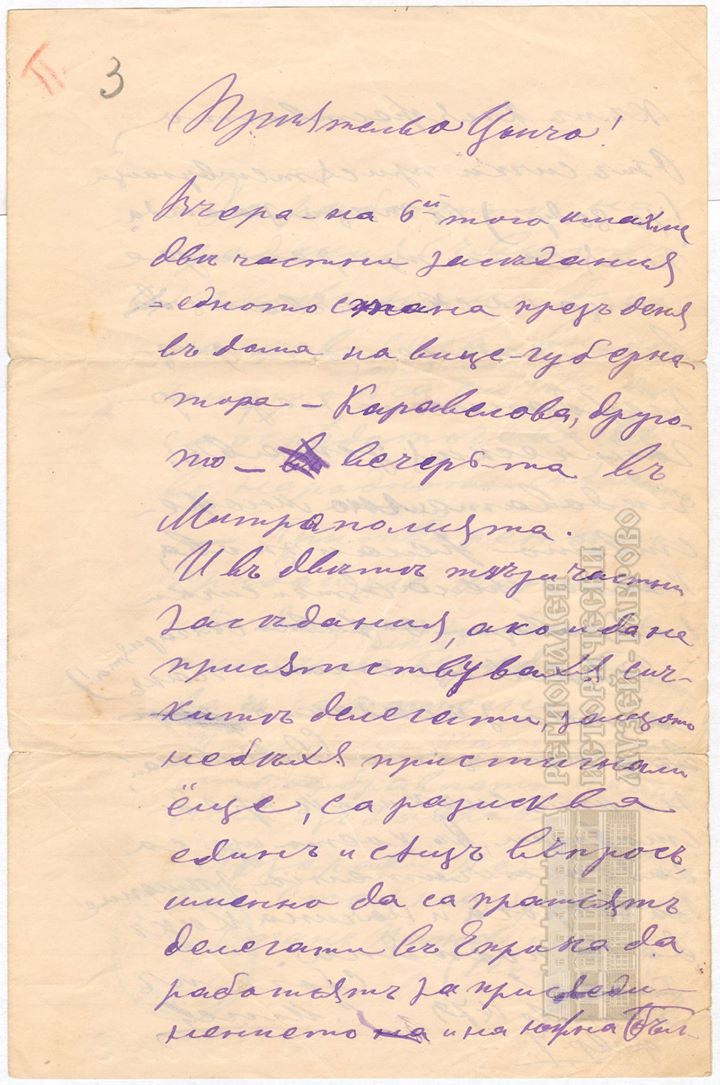 П. 3
Приятельо Цончо!
Вчера – на 6ий того имахме
двѣ частни засѣдания
– едното стана презъ деня
въ дома на вице-губерна-
тора – Каравелова, друго-
то – вечерьта въ
Митрополията.
И въ двѣтѣ тѣзи частни
засѣдания, ако и да не
присѫтствувахѫ сич-
китѣ делегати, защото
небѣхѫ пристигнали
ёще, са разисква
единъ и сѫщъ въпросъ,
именно да са пратѭтъ
делегати въ Европа да
работѭтъ за присъеди-
нението на и на южна Бъл-
РЕГИОНАЛЕН
ИСТОРИЧЕСКИ
МУЗЕЙ - ТЪРНОВО